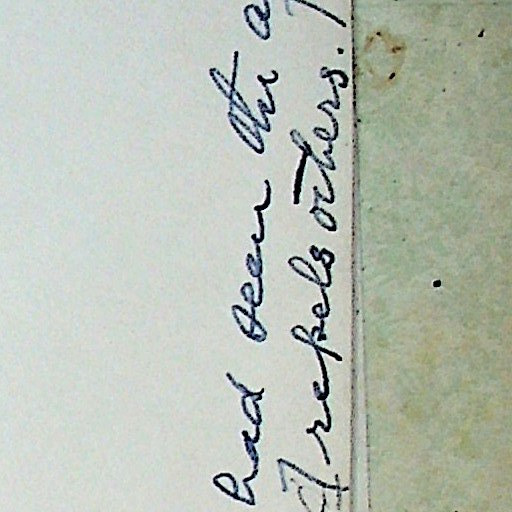 had seen the a
I repels others. I